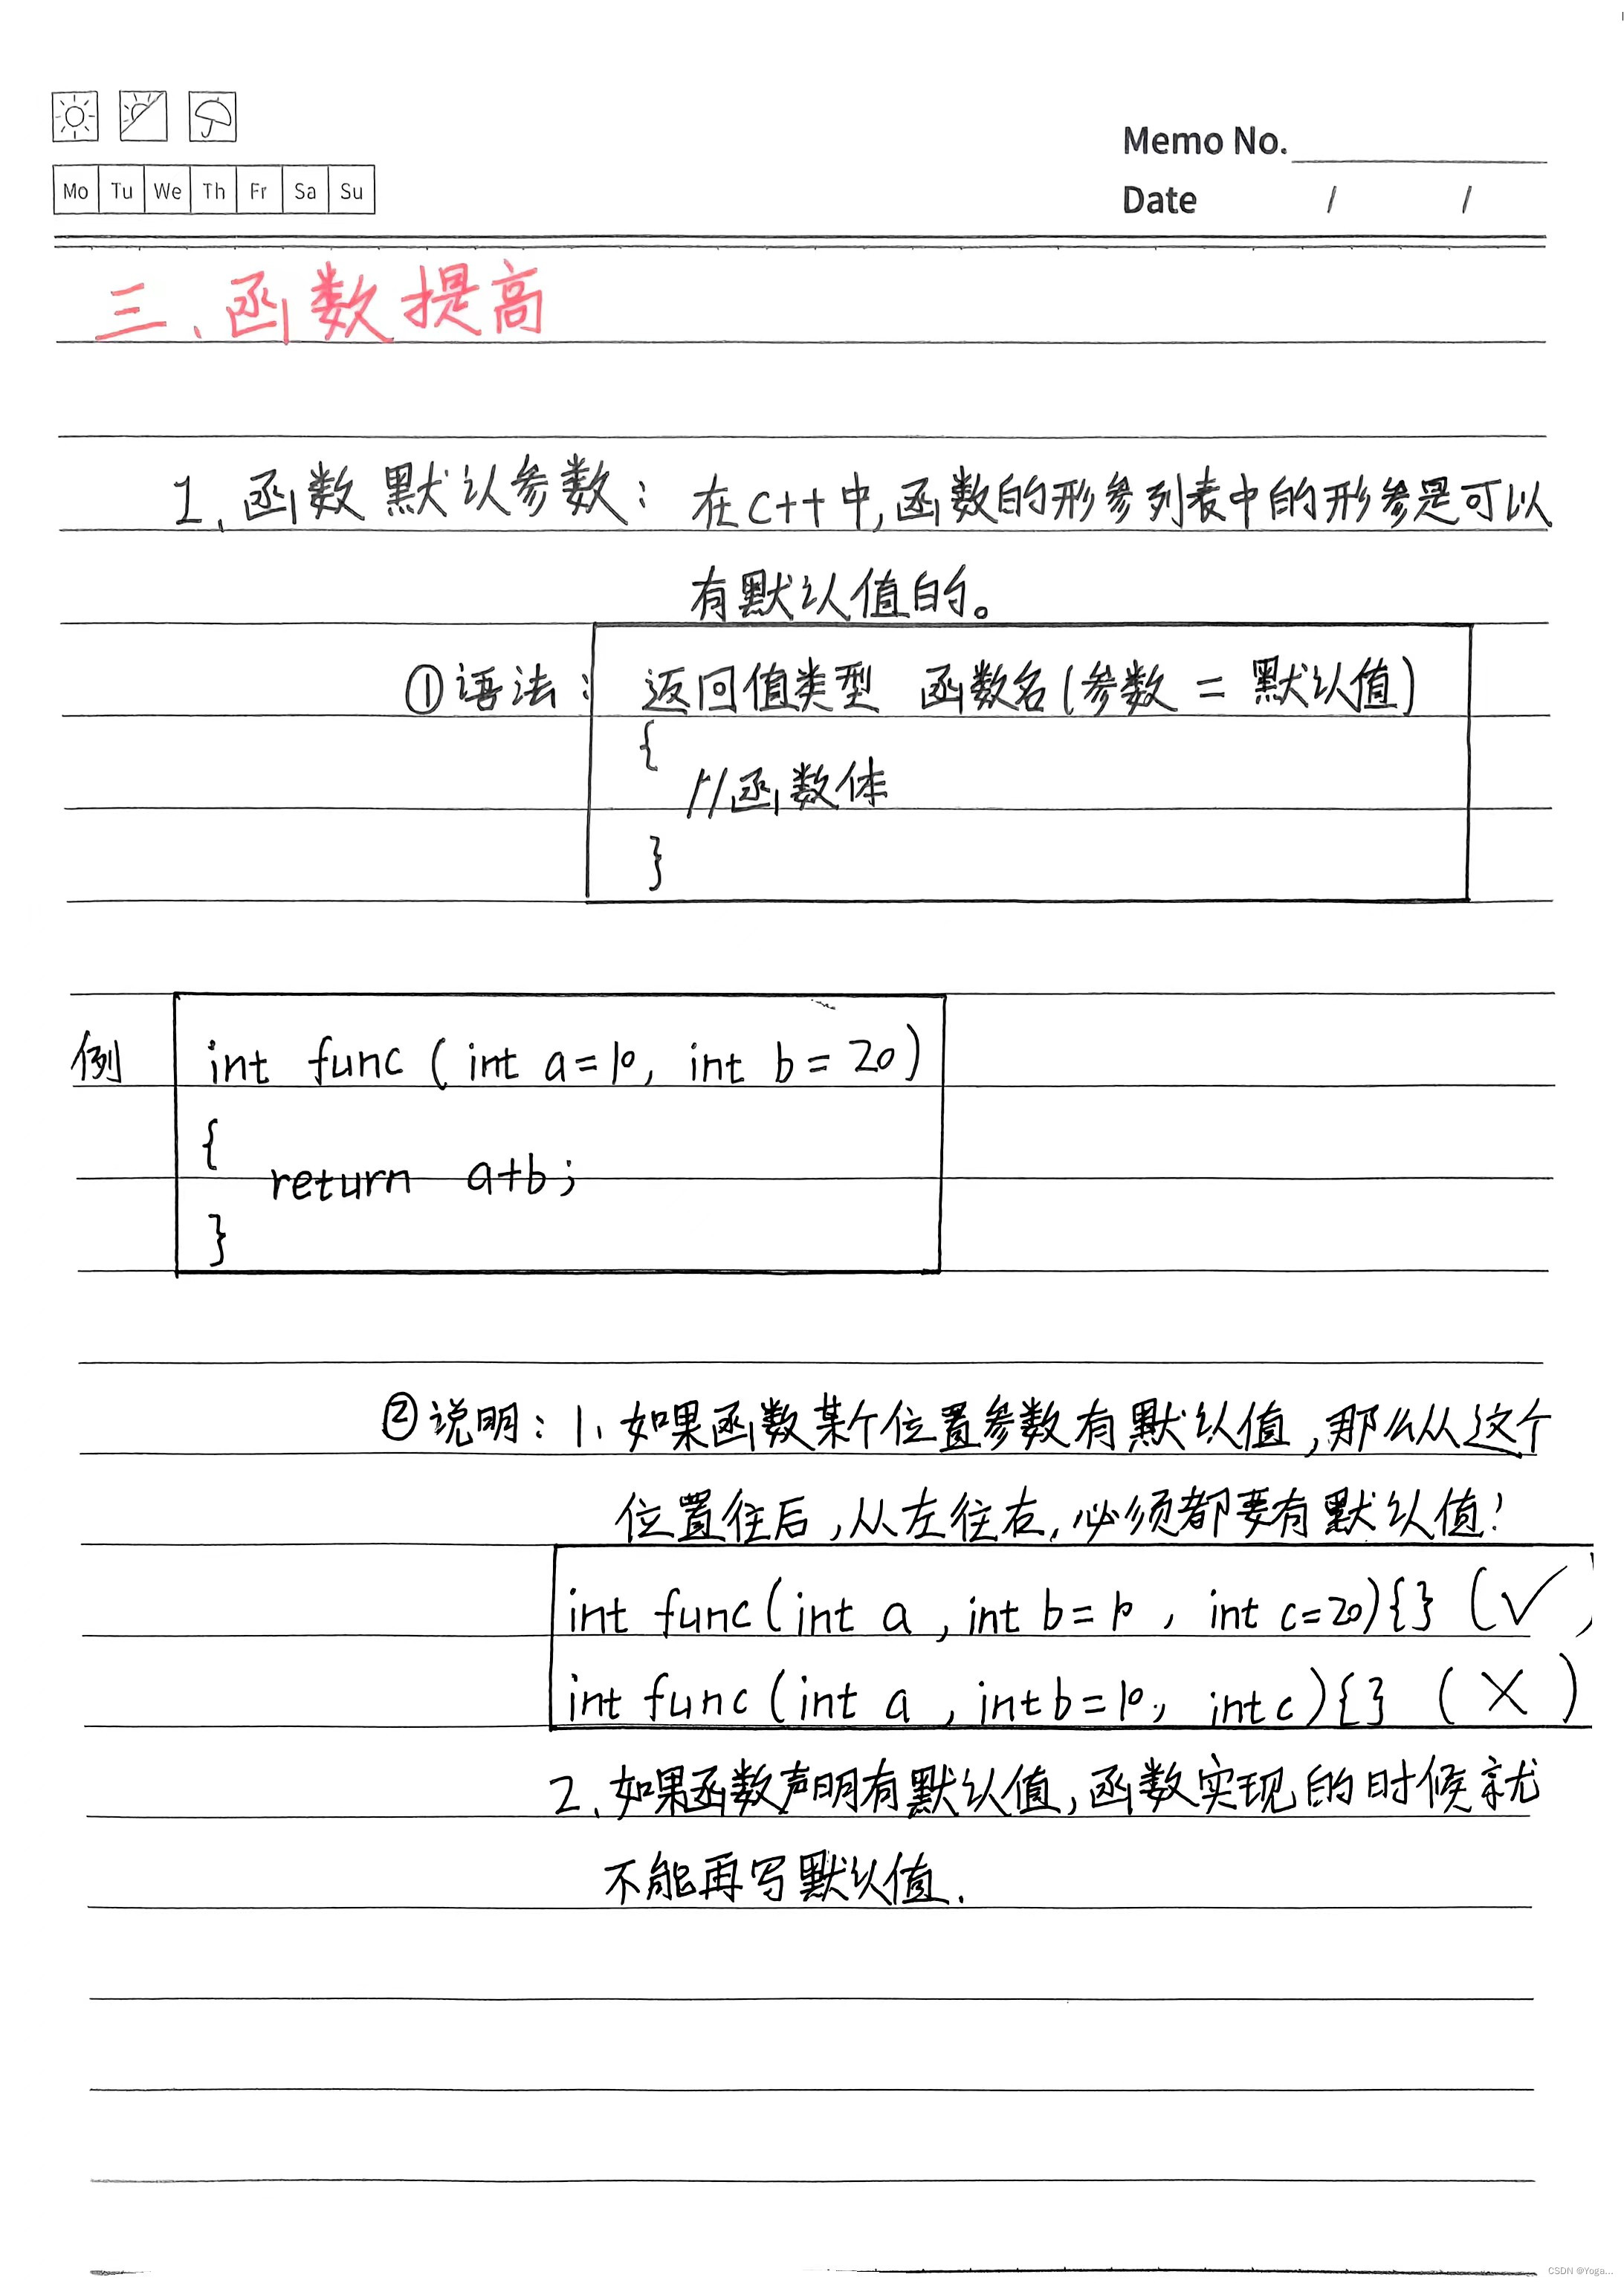 Memo No.
Mo Tu We Th Fr Sa Su
Date / /
三、函数提高
1、函数默认参数： 在C++中,函数的形参列表中的形参是可以
有默认值的。
①语法： 返回值类型 函数名(参数 = 默认值)
{
//函数体
}
例 int func ( int a=10, int b = 20)
{
return a+b;
}
②说明：1、如果函数某个位置参数有默认值,那么从这个
位置往后,从左往右,必须都要有默认值！
int func(int a , int b=10 , int c=20){} (√)
int func(int a , int b=10, int c){} (×)
2、如果函数声明有默认值,函数实现的时候就
不能再写默认值.
CSDN @Yoga...